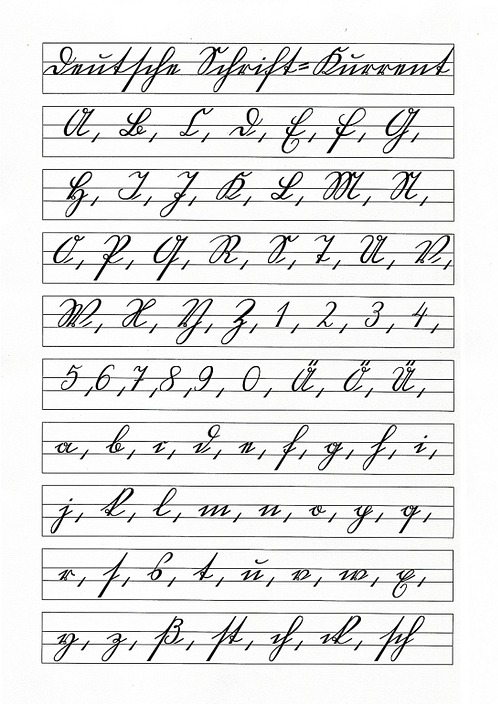 Deutsche Schrift=Kurrent
A, B, C, D, E, F, G,
H, I, J, K, L, M, N,
O, P, Q, R, S, T, U, V,
W, X, Y, Z, 1, 2, 3, 4,
5, 6, 7, 8, 9, 0, Ä, Ö, Ü,
a, b, c, d, e, f, g, h, i,
j, k, l, m, n, o, p, q,
r, ſ, s, t, u, v, w, x,
y, z, ß, ſt, ch, ck, ſch